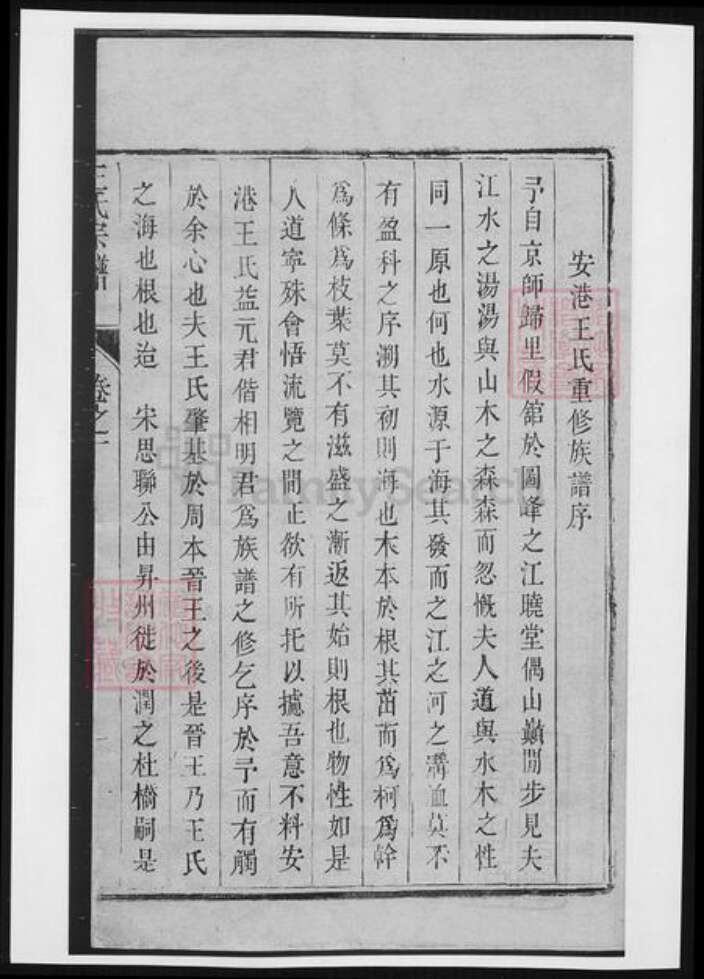 安港王氏重修族譜序
予自京師歸里假舘於圌峰之江曉堂偶山巔閒步見夫
江水之湯湯與山木之森森而忽慨夫人道與水木之性
同一原也何也水源于海其發而之江之河之溝洫莫不
有盈科之序溯其初則海也木本於根其茁而爲柯爲幹
爲條爲枝葉莫不有滋盛之漸返其始則根也物性如是
人道寧殊會悟流覽之間正欲有所托以攄吾意不料安
港王氏益元君偕相明君爲族譜之修乞序於予而有觸
於余心也夫王氏肇基於周本晉王之後是晉王乃王氏
之海也根也迨 宋思聯公由昇州徙於潤之杜橋嗣是
王氏宗譜
卷之一
FamilySearch